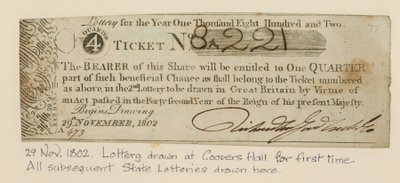 Lottery for the Year One Thousand Eight Hundred and Two.
A QUARTER
4 TICKET No 8m221
The BEARER of this Share will be entitled to One QUARTER
part of such beneficial Chance as shall belong to the Ticket numbered
as above, in the 2nd Lottery to be drawn in Great Britain by Virtue of
an Act passed in the Forty Second Year of the Reign of his present Majesty.
Begins Drawing
29 NOVEMBER, 1802
29 Nov. 1802. Lottery drawn at Coopers Hall for first time.
All subsequent State Lotteries drawn here.